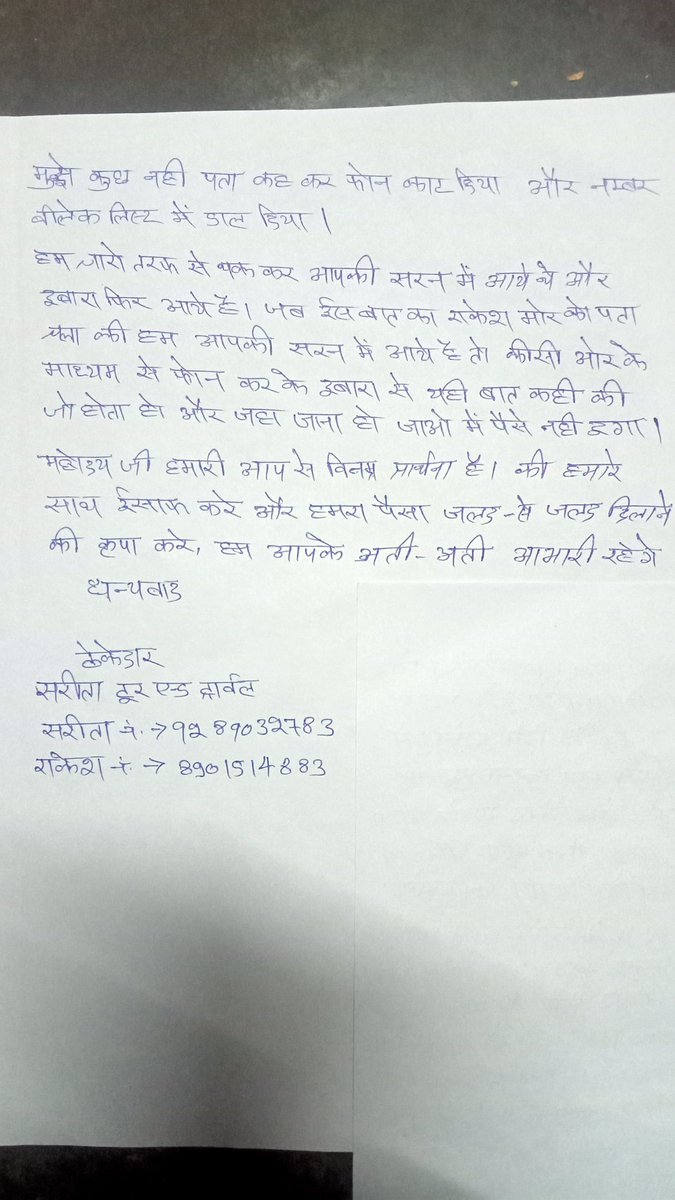 मुझे कुछ नही पता कह कर फोन काट दिया और नम्बर
बीलेक लिस्ट में डाल दिया।
हम चारो तरफ से थक कर आपकी सरन में आये थे और
दुबारा फिर आये है। जब ईस बात का राकेश मोर को पता
चला की हम आपकी सरन में आये है तो कीसी ओर के
माध्यम से फोन कर के दुबारा से यही बात कही की
जो होता हो और जहा जाना हो जाओ में पैसे नही दुगा।
महोदय जी हमारी आप से विनम्र प्रार्थना है। की हमारे
साथ ईसाफ करे और हमरा पैसा जलद-से जलद दिलाने
की कृपा करे, हम आपके अती-अती आभारी रहेगे
धन्यवाद
ठेकेदार
सरीता टूर एड ट्रार्वल
सरीता नं. → 9289032783
राकेश नं. → 8901514883